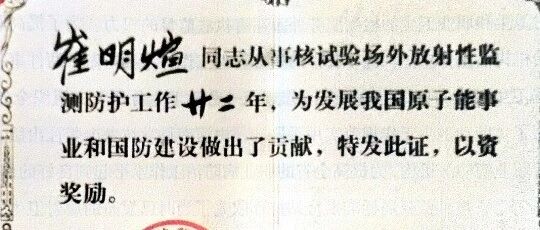 崔明煊同志从事核试验场外放射性监
测防护工作廿二年，为发展我国原子能事
业和国防建设做出了贡献，特发此证，以资
奖励。